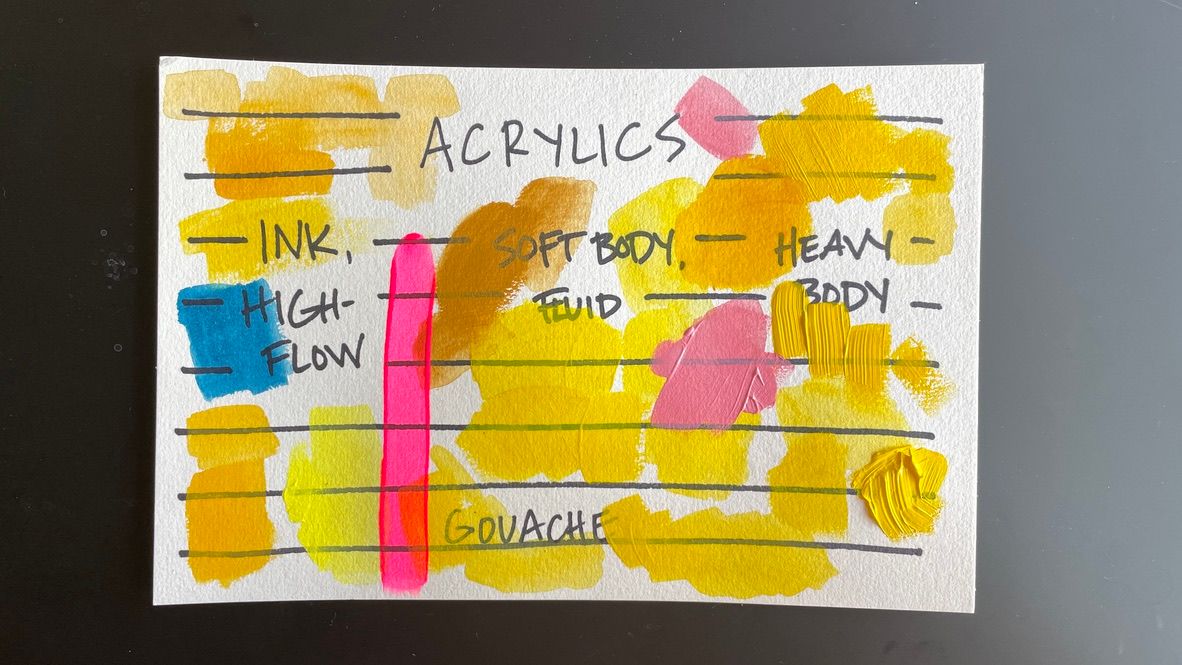 ACRYLICS
INK,
HIGH-
FLOW
SOFT BODY,
FLUID
HEAVY
BODY
GOUACHE